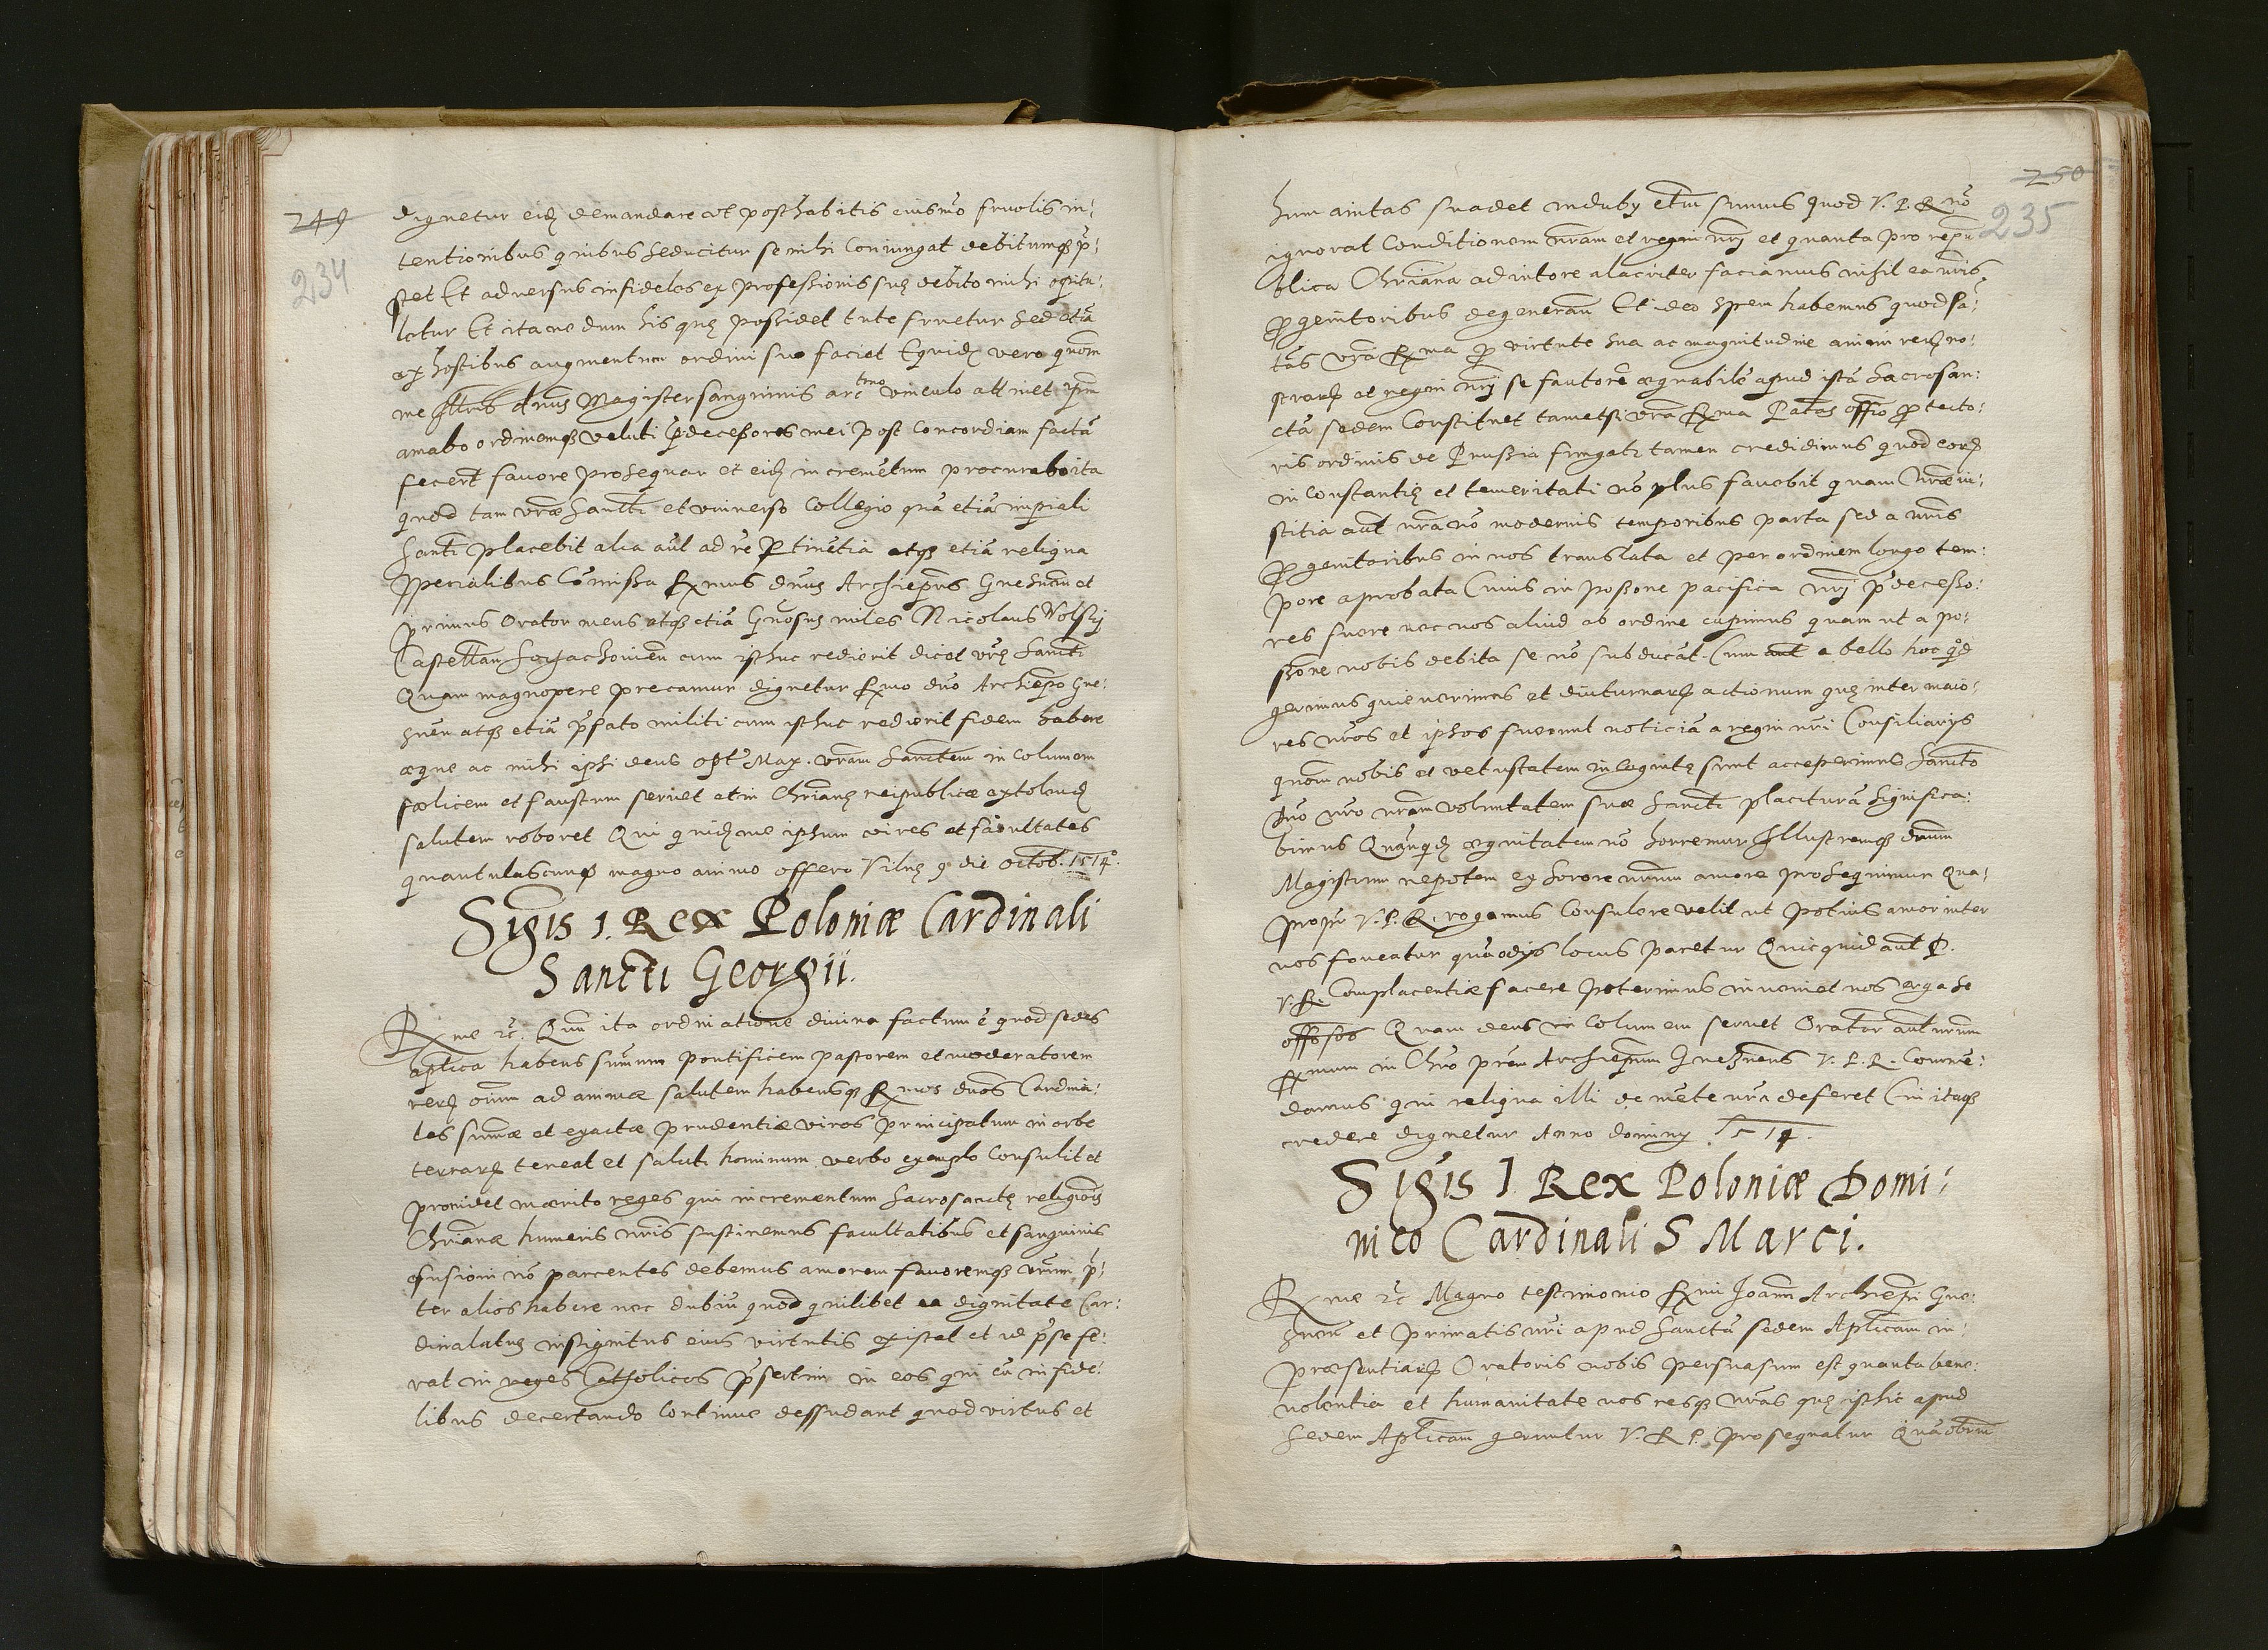 249
234
dignetur eidę demandare ut posthabitis eiusmo͂ friuolis in:
tentionibus quibus seducitur se mihi coniungat debitumqȝ p͂:
stet Et aduersus infideles ex professionis suę debito mihi opitu:
letur Et ita ne dum his quę possidet tute fruetur sed etiā
ex hostibus augmentum ordini suo faciet Equidę vero quom
me Illtris dnus Magister sanguinis arctmo vinculo attinet ipm
amabo ordinemqȝ veluti p̱decessores mei post concordiam factā
fecert fauore prosequar et eidę incremētum procurabo ita
quod tam vrae Sancti et vniuerso Collegio quā etiā impiali
Santi placebit alia aut ad rē ptinētia atqȝ etiā reliqua
specialibus cōmissa Rxmus dnus Archiepus Gnesnen et
primus Orator meus atqȝ etiā Gnosus miles Nicolaus Volsky
Castellan Sochachouien cum isthuc redierit dicet vrę Sancti
Quam magnopere precamur dignetur Rxmo dno Archiepo Gne:
snen atqȝ etiā p͂fato militi cum isthuc redierit fidem habere
aeque ac mihi ipsi deus opt Max. vram Sanctem incolumem
foelicem et faustum seruet et in Chrianę reipublicae extolendę
salutem roboret Qui quidę me ipsum vires et facultates
quantulascunqȝ magno animo offero Vilnę 9 die octob. 1514°.
Sigis 1. Rex Poloniae Cardinali
Sancti Georgii.
Rxme ꝛc. Qum ita ordinatione diuina factum ē quod sedes
aplica habens summum pontificem pastorem et moderatorem
rerę oium ad animae salutem habensqȝ Rxmos dnos Cardina:
les summae et exactae prudentiae viros principatum in orbe
terrarę teneat et saluti hominum verbo exemplo consulit et
prouidet maerito reges qui incrementum sacrosanctę religiois
Chrianae humeris nris sustinemus facultatibus et sanguinis
efusioni nō parcentes debemus amorem fauoremqȝ vrum p͂:
ter alios habere nec dubiū quod quilibet ea dignitate Car:
dinalatus insignitus eius virtutis existat et id p͂ se fe:
rat in reges Catholicos p͂sertim in eos qui cū infide:
libus decertando continue dessudant quod virtus et
250
235
humanitas suadet indubÿ etm sumus quod V. P. R nō
ignorat conditionem nram et regni nrj et quanta pro repu
blica Chriana adiutore alacriter faciamus nihil ea nris
p̱genitoribus degeneram Et ideo spem habemus quod Pa:
tas vra Rxma p̱ virtute sua ac magnitudine animi rerę no:
strarę et regni nrj se fautorē aequabilē apud istā Sacrosan:
ctā sedem Constituet tametsi vra Rxma Patas offio p̱tecto:
ris ordinis de Prussia fungatr tamen credidimus quod eorę
inconstantię et temeritati nō plus fauebit quam nrae iu:
stitia aut nra nō modernis temporibus parta sed a nris
p̱genitoribus in nos translata et per ordinem longo tem:
pore aprobata Cuius in possone pacifica nrj p͂decesso:
res fuere nec nos aliud ab ordine cupimus quam ut a po:
ssone nobis debita se nō subducāt. Cum a bello hoc qd
gerimus quieuerimus et diuturnarę actionum quę inter maio:
res nros et ipsos fuerunt noticiā a regni nri Consiliarÿs
quom nobis et vetustatem incognitę sint acceperimus Sancto
dno nro nram voluntatem suae Sancti placiturā significa:
bimus Quāquidę aequitatem nō horremur Illustremqȝ dnum
Magistrum nepotem ex sorore nrum amore prosequimur Qua:
propr V. P. R. rogamus consulere velit ut potius amor inter
nos foueatur quā odÿs locus paretur Quicquid aut P.
V. R. complacentiae facere poterimus inueniet nos erga se
offisos Quam deus incolumem seruet Orator aut nrum
Rxmum in Chro prem Archiepum Gneznens V. P. R. comme:
damus qui reliqua illi de mēte nra deferet Cui itaqȝ
credere dignetur Anno dominÿ 1514.
Sigis 1 Rex Poloniae Domi:
nico Cardinali S Marci.
Rxme ꝛc Magno testimonio Rxmi Joannis Archiepi Gne:
snen et primatis nri apud Sanctā sedem Aplicam in:
praesentiarę Oratoris nobis persuasum est quanta bene:
uolentia et humanitate nos resqȝ nras quę isthic apud
Sedem Aplicam geruntur V. R P. prosequatur Quāobrem